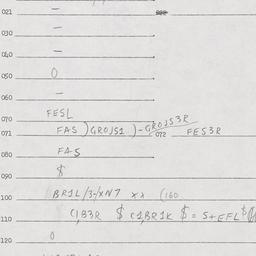 021 —
030 —
040 —
050 0
060 —
FESL
070
071 FAS ) GROJS1 ) - GROJS3R
072 FES3R
080 FAS
090 $
100 BR1L /3-/XN7 xx (160
110 C1,B3R $ C1,BR1K $ = S+EFL
120 0